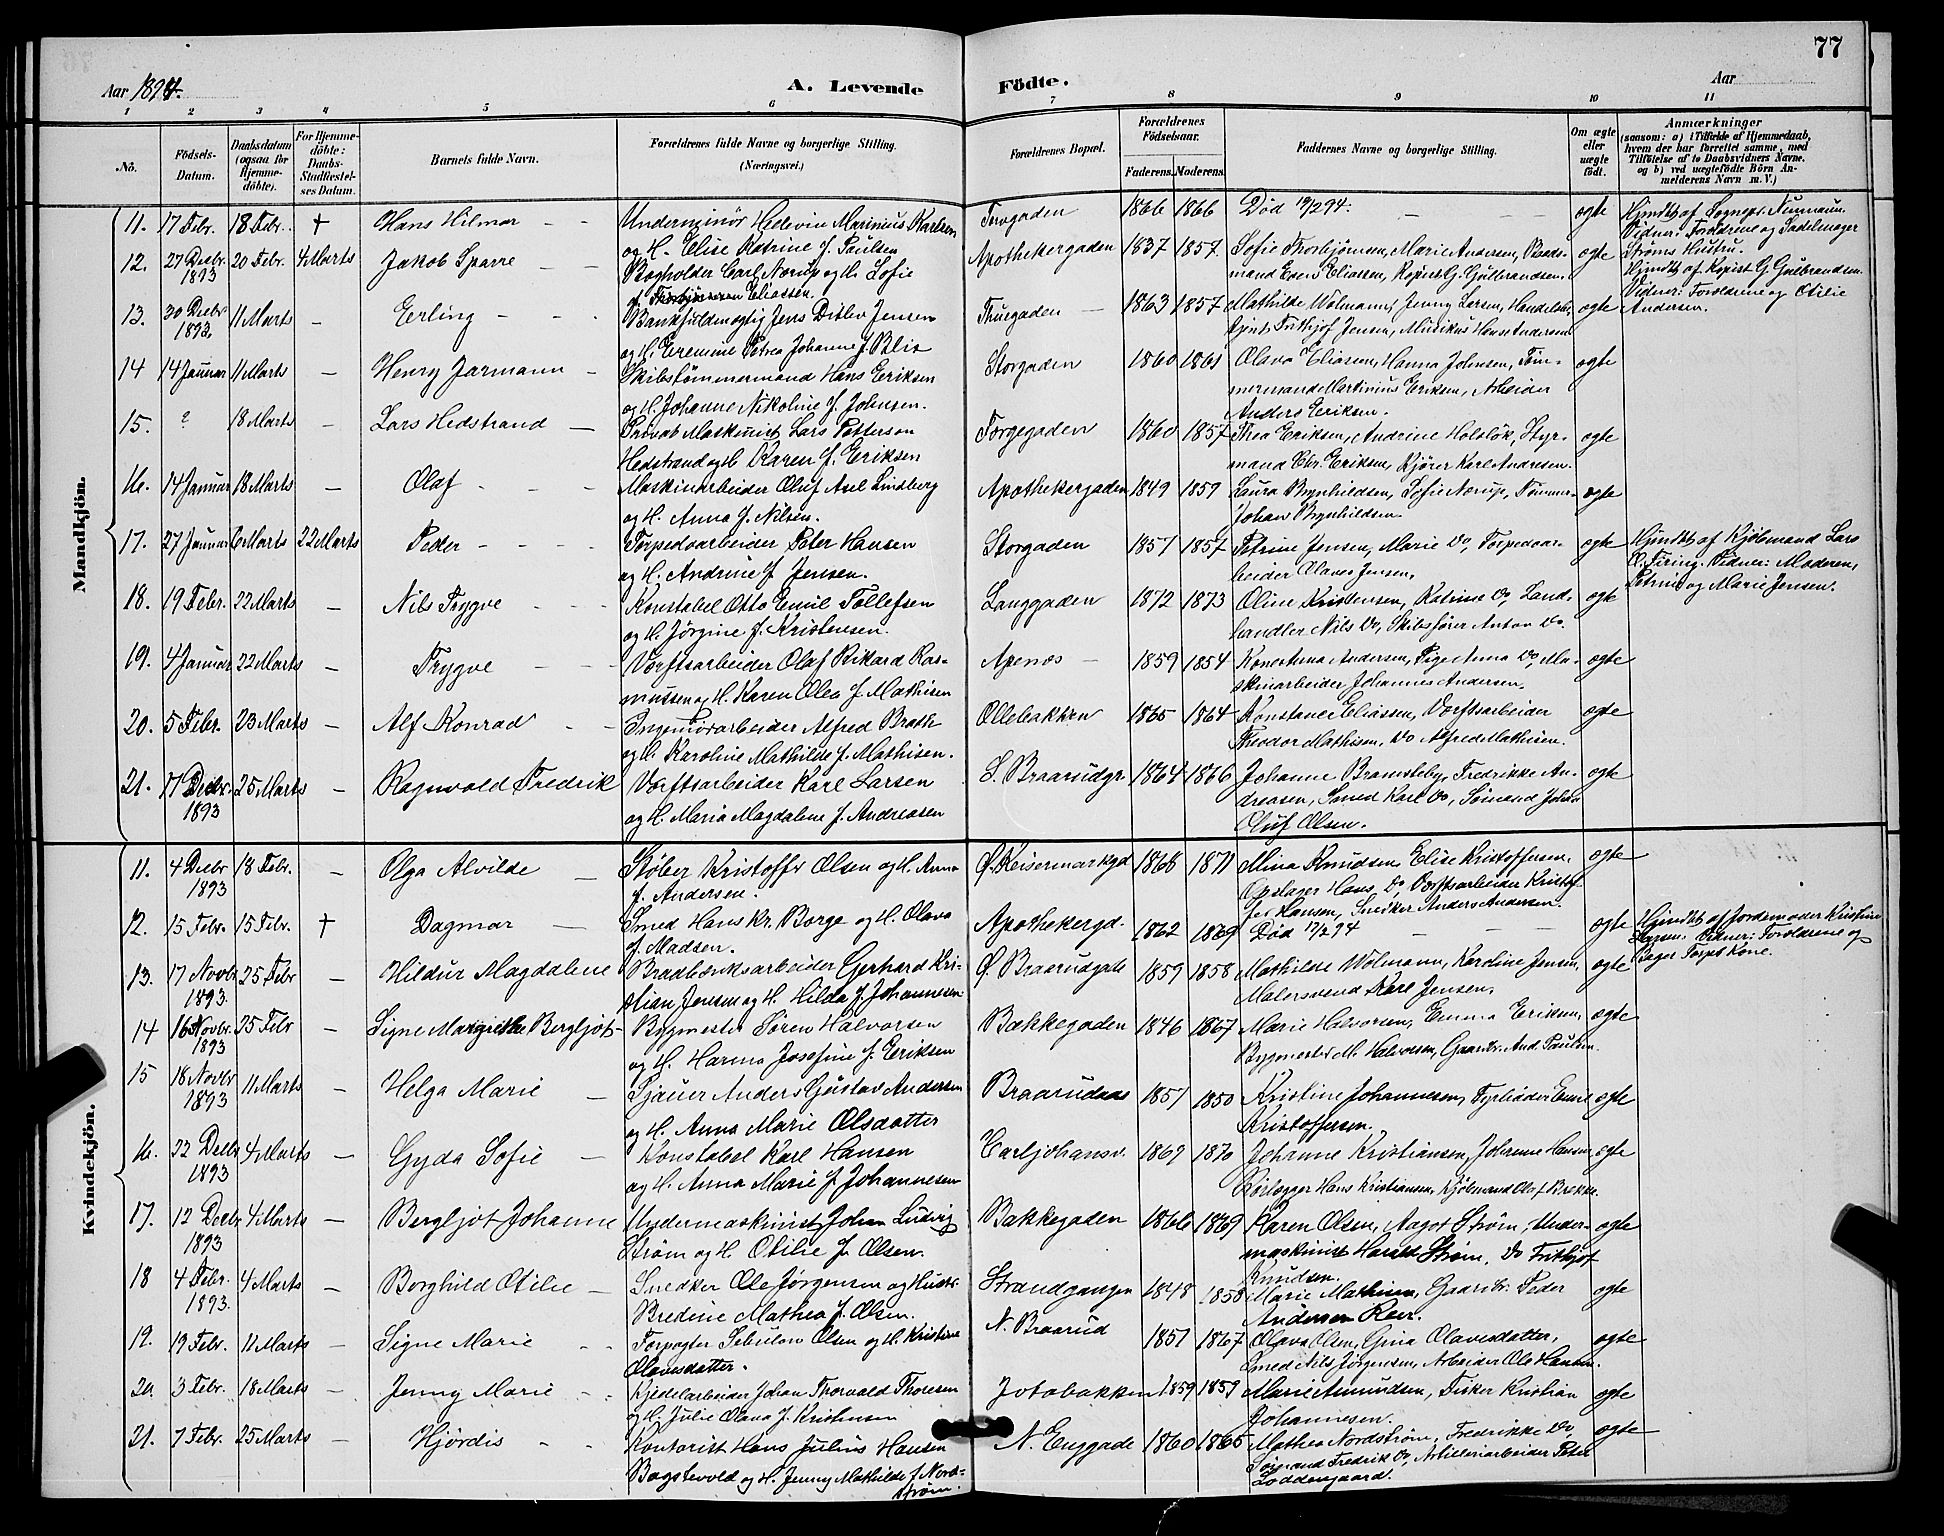 77
Aar 1894.
A. Levende Födte.
Aar
1 2 3 4 5 6 7 8 9 10 11
No.
Födsels-Datum.
Daabsdatum (ogsaa for Hjemme-döbte).
For Hjemme-döbte: Daabs-Stadfæstel-ses Datum.
Barnets fulde Navn.
Forældrenes fulde Navne og borgerlige Stilling. (Næringsvei.)
Forældrenes Bopæl.
Forældrenes Födselsaar.
Faderens. Moderens.
Faddernes Navne og borgerlige Stilling.
Om ægte eller uægte födt.
Anmærkninger (saasom: a) i Tilfælde af Hjemmedaab, hvem der har forrettet samme, med Tilföielse af to Daabsvidners Navne. og b) ved uægtefödte Börn An-melderens Navn m. V.)
Mandkjön.
11. 17 Febr. 18 Febr. † Hans Hilmar - - Underminör Hedevin Marinius Karlsen 1866 1866 Död 19/2 94. - - ægte Hjmdbt af Sognepr. Numann.
og H. Elise Katrine f. Paulsen Vidner: Forældrene og Sadelmager
12. 27 Decbr. 20 Febr. 4 Marts Jakob Sparre - - Bogholder Carl Nærup og H. Sofie Apothekergaden 1837 1857. Sofie Thorbjörnsen, Marie Andersen, Baads- ægte Ströms Hustru.
1893 f. Thorbjörnsen Eliassen. mand Even Eliassen, Kopist G. Gulbrandsen. Hjmdbt af Kopist G. Gulbrandsen.
13. 30 Decbr 11 Marts - Erling - - - Bankfuldmægtig Jens Ditlev Jensen Thuegaden - 1863 1857 Mathilde Wolmann, Jenny Larsen, Handels- ægte Vidner: Forældrene og Otilie
1893. og H. Eremine Petrea Johanne f. Blix agent Frithjof Jensen, Musikus Hans Andersen. Andersen.
14 14 Januar 11 Marts - Henry Jarmann - Skibstömmermand Hans Eriksen Storgaden 1860 1861 Olava Eliasen, Hanna Johnsen, Töm- ægte
og H. Johanne Nikoline f. Johnsen. mermand Martinius Eriksen, Arbeider
Anders Eriksen.
15. ? 18 Marts - Lars Hedstrand - Privat Maskinist Lars Petterson Torvegaden 1860 1857 Thea Eriksen, Andrine Holslök, Styr- ægte
Hedstrand og H. Karen f. Eriksen mand Chr. Eriksen, Kjører Karl Andresen.
16. 14 Januar 18 Marts - Olaf - - - Maskinarbeider Oluf Axel Lindberg Apothekergaden 1849 1859 Laura Brynhildsen, Sofie Nærup, Tömmer- ægte
og H. Anna f. Nilsen. Johan Brynhildsen.
17. 27 Januar 6 Marts 22 Marts Peder - - - - Torpedoarbeider Peter Hansen Storgaden 1851 1857 Petrine Jensen, Marie Do, Torpedoar- ægte Hjmdbt af Kjöbmand Lars
og H. Andrine f. Jensen. beider Olaves Jensen. Firing. Vidner: Moderen,
18. 19 Febr. 22 Marts - Nils Trygve - - - Konstabel Otto Emil Tollefsen Langgaden 1872 1873 Oline Kristensen, Katrine Do, Land- ægte Petrine og Marie Jensen.
og H. Jörgine f. Kristensen. handler Nils Do, Skibsförer Anton Do.
19. 4 Januar 22 Marts - Trygve - - Værftsarbeider Olaf Rikard Ras- Apenæs - 1859 1854 Kone Anna Andersen, Pige Anna Do, Ma- ægte
mussen og H. Karen Olea f. Mathisen skinarbeider Johannes Andersen.
20. 5 Febr. 23 Marts - Alf Konrad - - Ingeniörarbeider Alfred Brath Ollebakken 1865 1864 Konstance Eliassen, Værftsarbeider ægte
og H. Karoline Mathilde f. Mathisen. Theodor Mathisen, Do Alfred Mathisen.
21. 17 Decbr. 25 Marts - Ragnvald Fredrik Værftsarbeider Karl Larsen S. Braarudgt. 1864 1866 Johanne Bramsleby, Fredrikke An- ægte
1893 og H. Maria Magdalene f. Andreasen dreasen, Smed Karl Do, Sömand Johan
Oluf Olsen.
Kvindekjön.
11. 4 Decbr 18 Febr. - Olga Alvilde - Stöber Kristoffer Olsen og H. Anna Ø. Keisermarkgd 1866 1871 Mina Knudsen, Elise Kristoffersen, ægte
1893 f. Andersen. Opslager Hans Do, Værftsarbeider Kristof-
fer Hansen, Snedker Anders Andersen.
12. 15 Febr. 15 Febr. † Dagmar - Smed Hans Kr. Borge og H. Olava Apothekergd. 1862 1869 Död 17/2 94 - - - ægte Hjmdbt af Jordemoder Kristine
f. Madsen. Vidner: Forældrene og
13. 17 Novbr 25 Febr - Hildur Magdalene Braadbænksarbeider Gerhard Kri- Ø. Braarudgade 1859 1858 Mathilde Wolmann, Karoline Jensen, ægte Bager Torps Kone.
1893. stian Jensen og H. Hilda f. Johannesen Malersvend Karl Jensen.
14 16 Novbr. 25 Febr - Signe Margrethe Bergljot - Bygmester Sören Halvorsen Bækkegaden 1846 1867 Marie Halvorsen, Emma Eriksen, ægte
1893 og H. Hanna Josefine f. Eriksen Bygmester M. Halvorsen, Gaardbr. And. Paulsen.
15 18 Novbr 11 Marts - Helga Marie - Sjauer Anders Gustav Andersen Braarudaas 1851 1850 Kristine Johannesen, Fyrböder Emil ægte
1893 og H. Anna Marie Olsdatter Kristoffersen.
16. 22 Decbr 4 Marts - Gyda Sofie - Konstabel Karl Hansen Carljohansv. 1869 1870 Johanne Kristiansen, Johanne Hansen, ægte
1893 og H. Anna Marie f. Johannesen Rörlægger Hans Kristiansen, Kjöbmand Olaf Brekke.
17. 12 Decbr 4 Marts - Bergljot Johanne Undermaskinist Johan Ludvig Bakkegaden 1866 1869 Karen Olsen, Aagot Ström, Under- ægte
1893 Ström og H. Otilie f. Olsen. maskinist Harald Ström, Do Frithjof
Knudsen.
18 4 Febr. 4 Marts - Borghild Otilie - Snedker Ole Jörgensen og Hustr. Strandgangen 1848 1858 Marie Mathisen, Gaardbr. Peder ægte
1893. Bredine Mathea f. Olsen. Andersen Röer.
19. 19 Febr. 11 Marts - Signe Marie - - Forpagter Sebulon Olsen og H. Kristine N. Braarud 1851 1867 Olava Olsen, Gina Olavesdatter, ægte
Olavesdatter. Smed Nils Jörgensen, Arbeider Ole Hansen.
20. 3 Febr. 18 Marts - Jenny Marie - - Kjedelarbeider Johan Thorvald Thoresen Jotabakken 1859 1859 Marie Amundsen, Fisker Kristian ægte
og H. Julie Olava f. Kristensen Johannesen.
21. 7 Febr. 25 Marts - Hjördis - - Kontorist Hans Julius Hansen N. Enggade 1860 1865 Mathea Nordström, Fredrikke Do, ægte
Bagstevold og H. Jenny Mathilde f. Nord- Sömand Fredrik Do, Artilleriarbeider Peter
ström. Loddengaard.